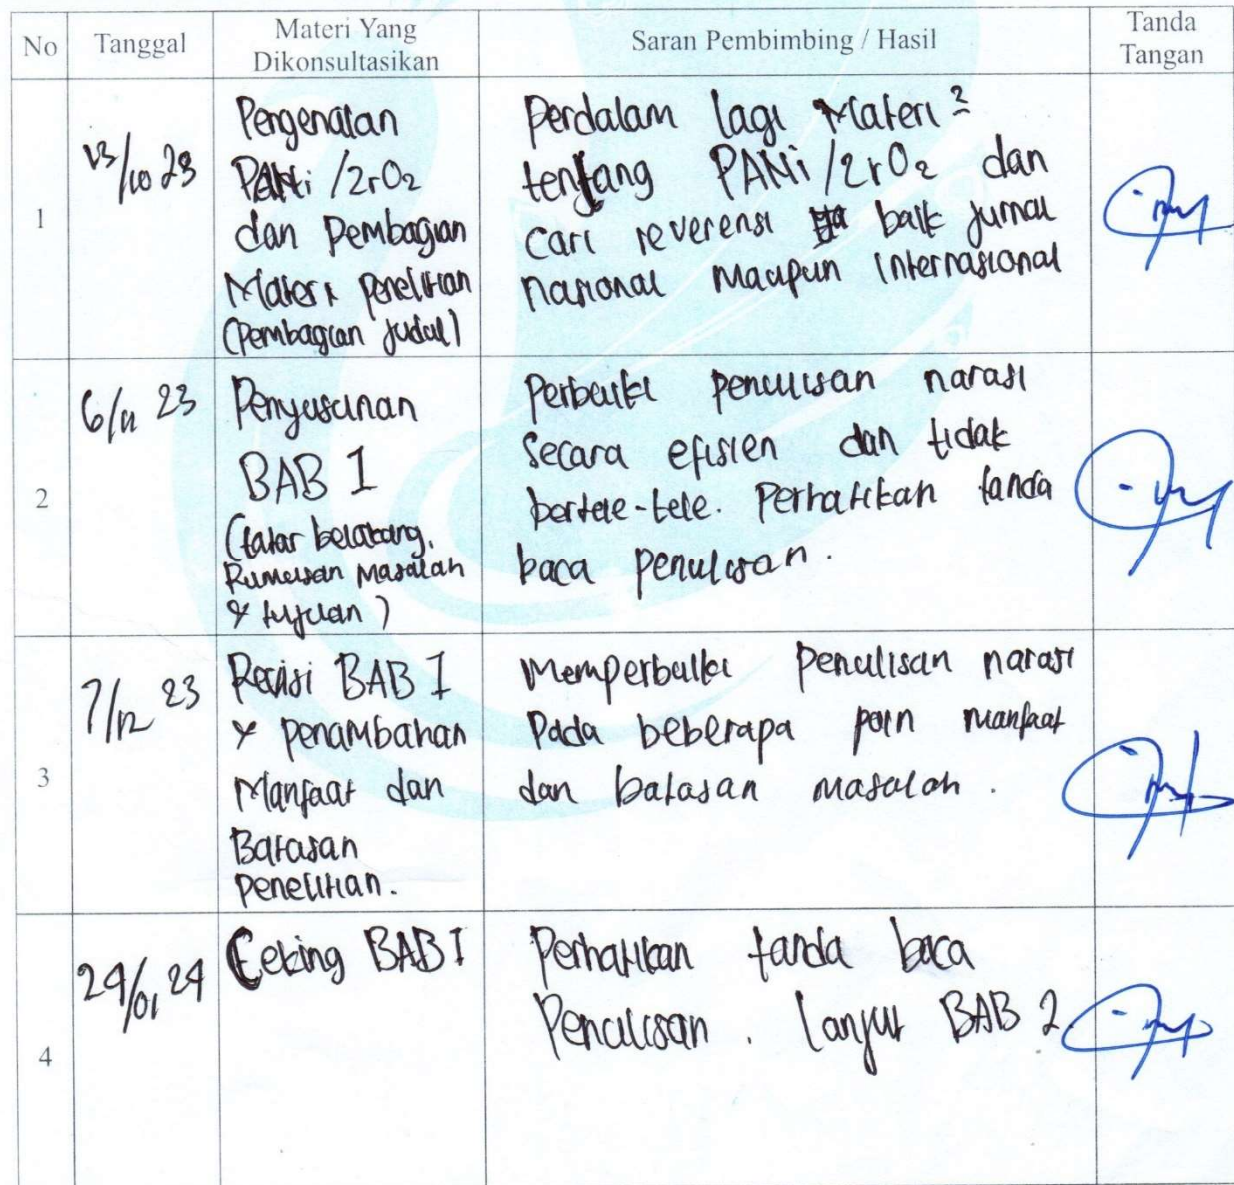 No
Tanggal
Materi Yang
Dikonsultasikan
Saran Pembimbing / Hasil
Tanda
Tangan
1
13/10 23
Pengenalan
PANi /ZrO2
dan Pembagian
Materi penelitian
(Pembagian judul)
Perdalam lagi Materi²
tentang PANi/ZrO2 dan
Cari reverensi baik jurnal
nasional maupun internasional
2
6/11 23
Penyusunan
BAB 1
(latar belakang,
Rumusan Masalah
& tujuan)
Perbaiki penulisan narasi
secara efisien dan tidak
bertele-tele. Perhatikan tanda
baca penulisan.
3
7/12 23
Revisi BAB I
& penambahan
Manfaat dan
Batasan
penelitian.
Memperbaiki penulisan narasi
Pada beberapa poin manfaat
dan batasan masalah.
4
24/01 24
Ceking BAB I
Perhatikan tanda baca
Penulisan. Lanjut BAB 2.